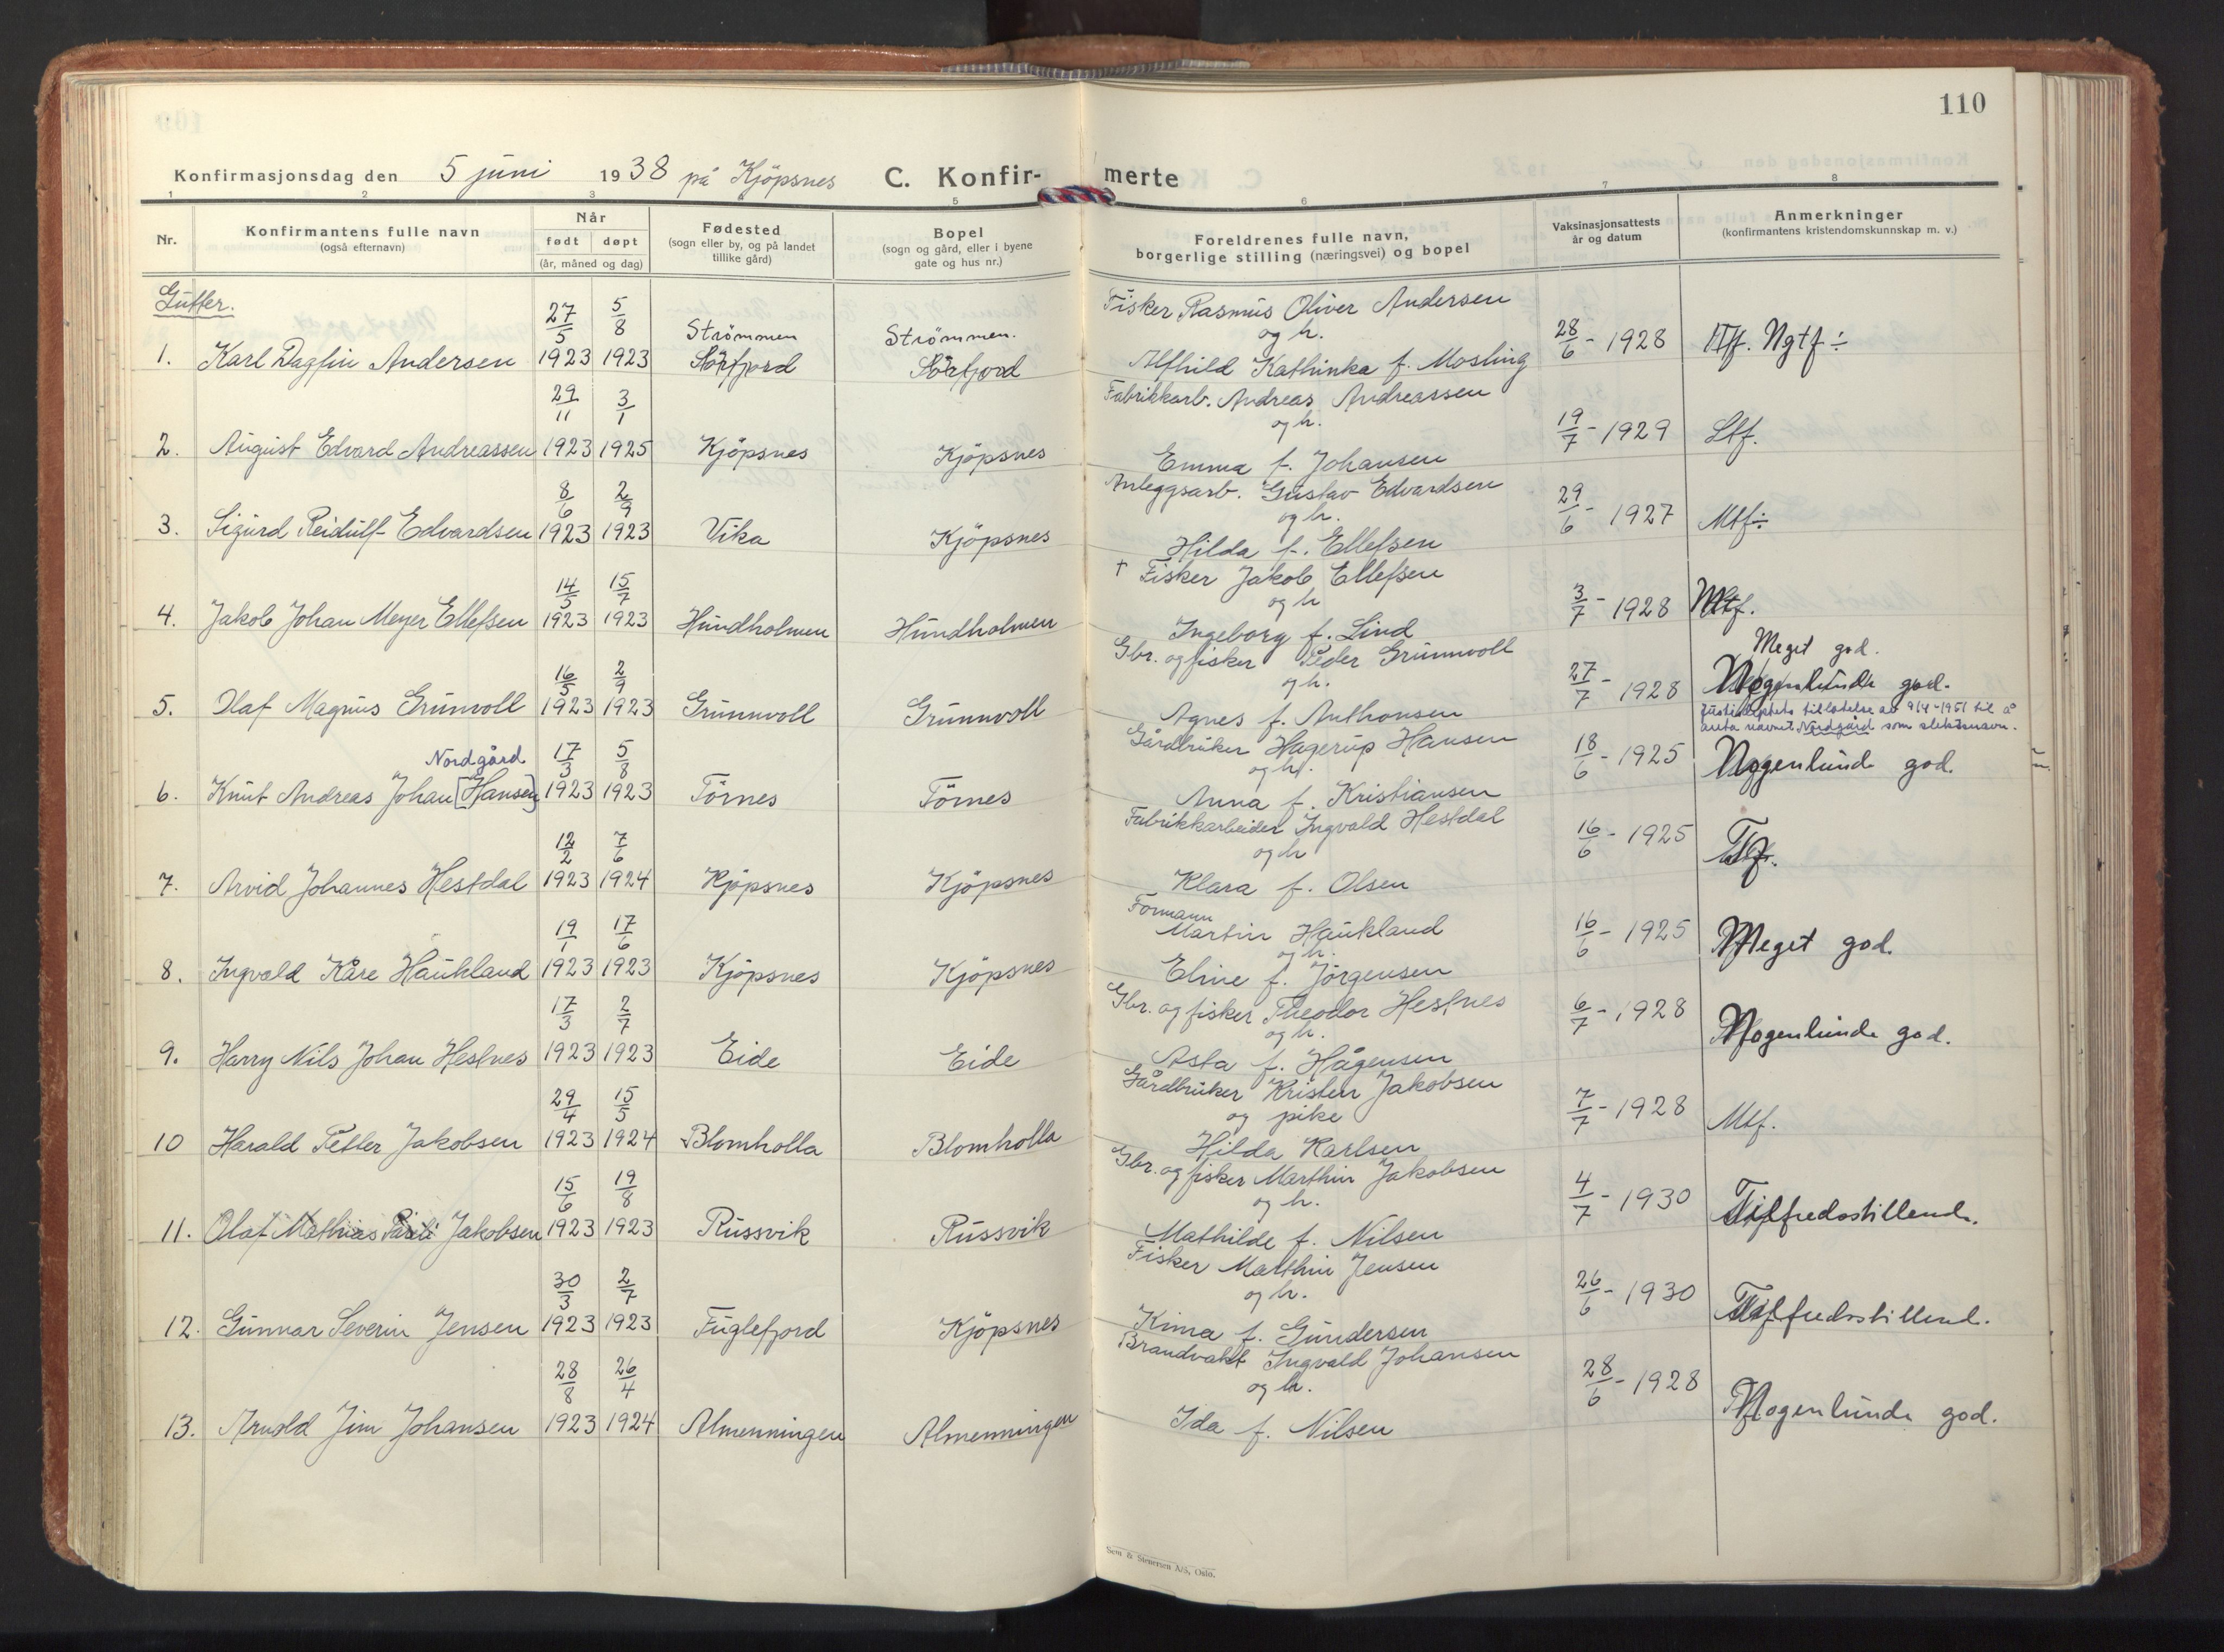 110
Konfirmasjonsdag den 5 juni 1938 på Kjöpsnes C. Konfir- merte
1 2 3 5 6 7 8
Nr.
Konfirmantens fulle navn
(også efternavn)
Når
født døpt
(år, måned og dag)
Fødested
(sogn eller by, og på landet
tillike gård)
Bopel
(sogn og gård, eller i byene
gate og hus nr.)
Foreldrenes fulle navn,
borgerlige stilling (næringsvei) og bopel
Vaksinasjonsattests
år og datum
Anmerkninger
(konfirmantens kristendomskunnskap m. v.)
Gutter.
1. Karl Dagfin Andersen 27/5 1923 5/8 1923 Strömmen Sörfjord Strömmen. Sörfjord
Fisker Rasmus Oliver Andersen
og h.
Alfhild Kathinka f. Mosling
28/6 - 1928 Ngtf ÷
2. August Edvard Andreassen 29/11 1923 3/1 1925 Kjöpsnes Kjöpsnes
Fabrikkarb. Andreas Andreassen
og h.
Emma f. Johansen
19/7 - 1929 Stf.
3. Sigurd Reidulf Edvardsen 8/6 1923 2/9 1923 Vika Kjöpsnes
Anleggsarb. Gustav Edvardsen
og h.
Hilda f. Ellefsen
29/6 - 1927 Mtf÷
4. Jakob Johan Meyer Ellefsen 14/5 1923 15/7 1923 Hundholmen Hundholmen
† Fisker Jakob Ellefsen
og h
Ingeborg f. Lind
3/7 - 1928 Mtf.
5. Olaf Magnus Grunvoll 16/5 1923 2/9 1923 Grunnvoll Grunnvoll
Gbr. og fisker Peder Grunnvoll
og h.
Agnes f. Anthonsen
27/7 - 1928 Meget god.
Nogenlunde god.
tillatelse av 9/4-1951 til å
anta navnet Nordgård som slektsnavn.
Nordgård
6. Knut Andreas Johan [Hansen] 17/3 1923 5/8 1923 Törnes Törnes
Gårdbruker Hagerup Hansen
og h.
Anna f. Kristiansen
18/6 - 1925 Nogenlunde god.
7. Arvid Johannes Hestdal 12/2 1923 7/6 1924 Kjöpsnes Kjöpsnes
Fabrikkarbeider Ingvald Hestdal
og h
Klara f. Olsen
16/6 - 1925 Tf.
8. Ingvald Kåre Haukland 19/1 1923 17/6 1923 Kjöpsnes Kjöpsnes
Formann
Martin Haukland
og h.
Eline f. Jörgensen
16/6 - 1925 Meget god.
9. Harry Nils Johan Hestnes 17/3 1923 2/7 1923 Eide Eide
Gbr. og fisker Theodor Hestnes
og h.
Asta f. Hågensen
6/7 - 1928 Nogenlunde god.
10 Harald Petter Jakobsen 29/4 1923 15/5 1924 Blomholla Blomholla
Gårdbruker Kristen Jakobsen
og pike
Hilda Karlsen
7/7 - 1928 Mtf.
11. Olaf Mathias Jakobsen 15/6 1923 19/8 1923 Russvik Russvik
Gbr. og fisker Marthin Jakobsen
og h.
Mathilde f. Nilsen
4/7 - 1930 Tilfredsstillende.
12. Gunnar Severin Jensen 30/3 1923 2/7 1923 Fuglefjord Kjöpsnes
Fisker Marthin Jensen
og h.
Kima f. Gundersen
26/6 - 1930 Tilfredsstillend.
13. Arnold Jim Johansen 28/8 1923 26/4 1924 Almenningen Almenningen
Brandvakt Ingvald Johansen
og h.
Ida f. Nilsen
28/6 - 1928 Nogenlunde god.
Sem & Stenersen A/S, Oslo.